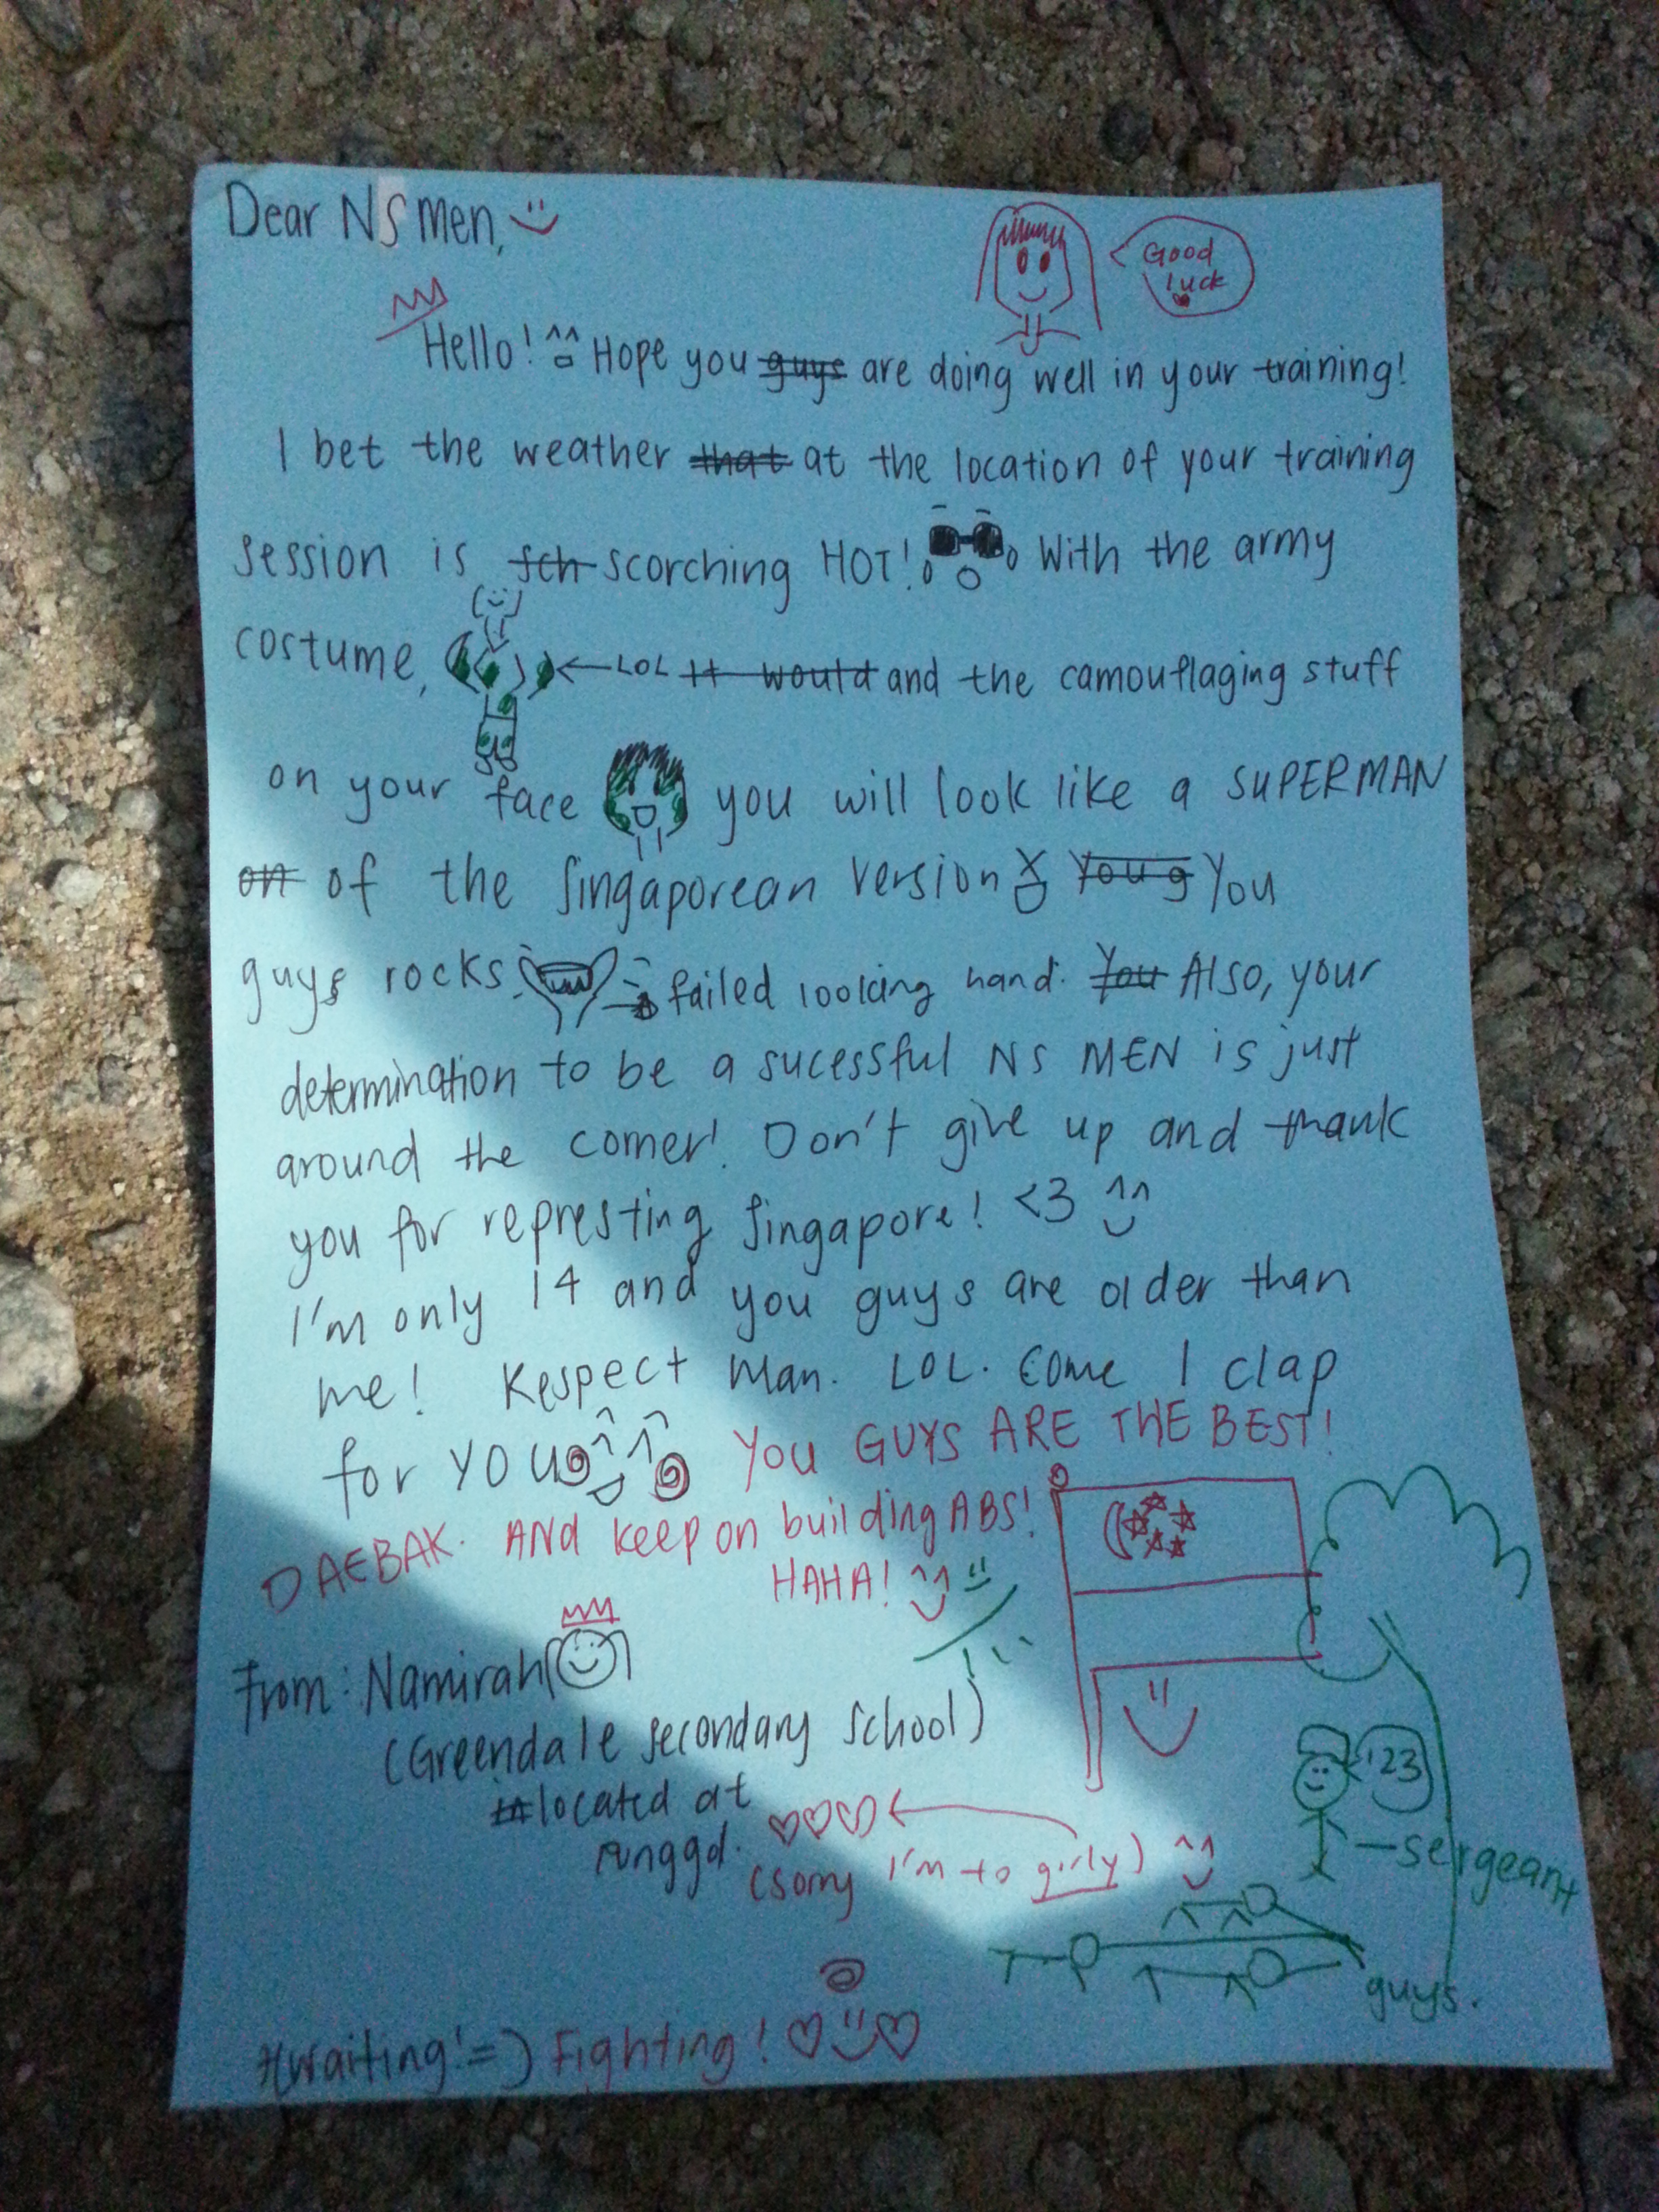 Dear NS Men,
Good
luck
Hello! Hope you guys are doing well in your training!
I bet the weather that at the location of your training
session is sch scorching HOT! With the army
costume, ← LOL It would and the camouflaging stuff
on your face you will look like a SUPERMAN
on of the Singaporean version You g You
guys rocks! failed looking hand. You Also, your
determination to be a sucessful NS MEN is just
around the corner! Don't give up and thank
you for represting Singapore! <3 ^^
I'm only 14 and you guys are older than
me! Respect Man. LOL. Come I clap
for YOU YOU GUYS ARE THE BEST!
DAEBAK. AND keep on building ABS!
HAHA!
From: Namirah
(Greendale Secondary School)
in located at
Punggol.
(sorry I'm to girly) ^^
123
sergeant
guys.
Hwaiting!=) Fighting!